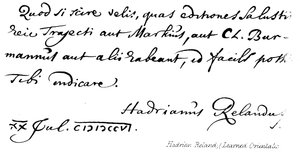 Quod si scire velis, quas editiones Salusti
heic Trajecti aut Markius, aut Cl. Bur-
mannus aut alii habeant, id facile poss
tibi indicare.
Hadrianus Relandus
XX Jul. CIƆIƆCCVI
Hadrian Reland, (Learned Orientalist